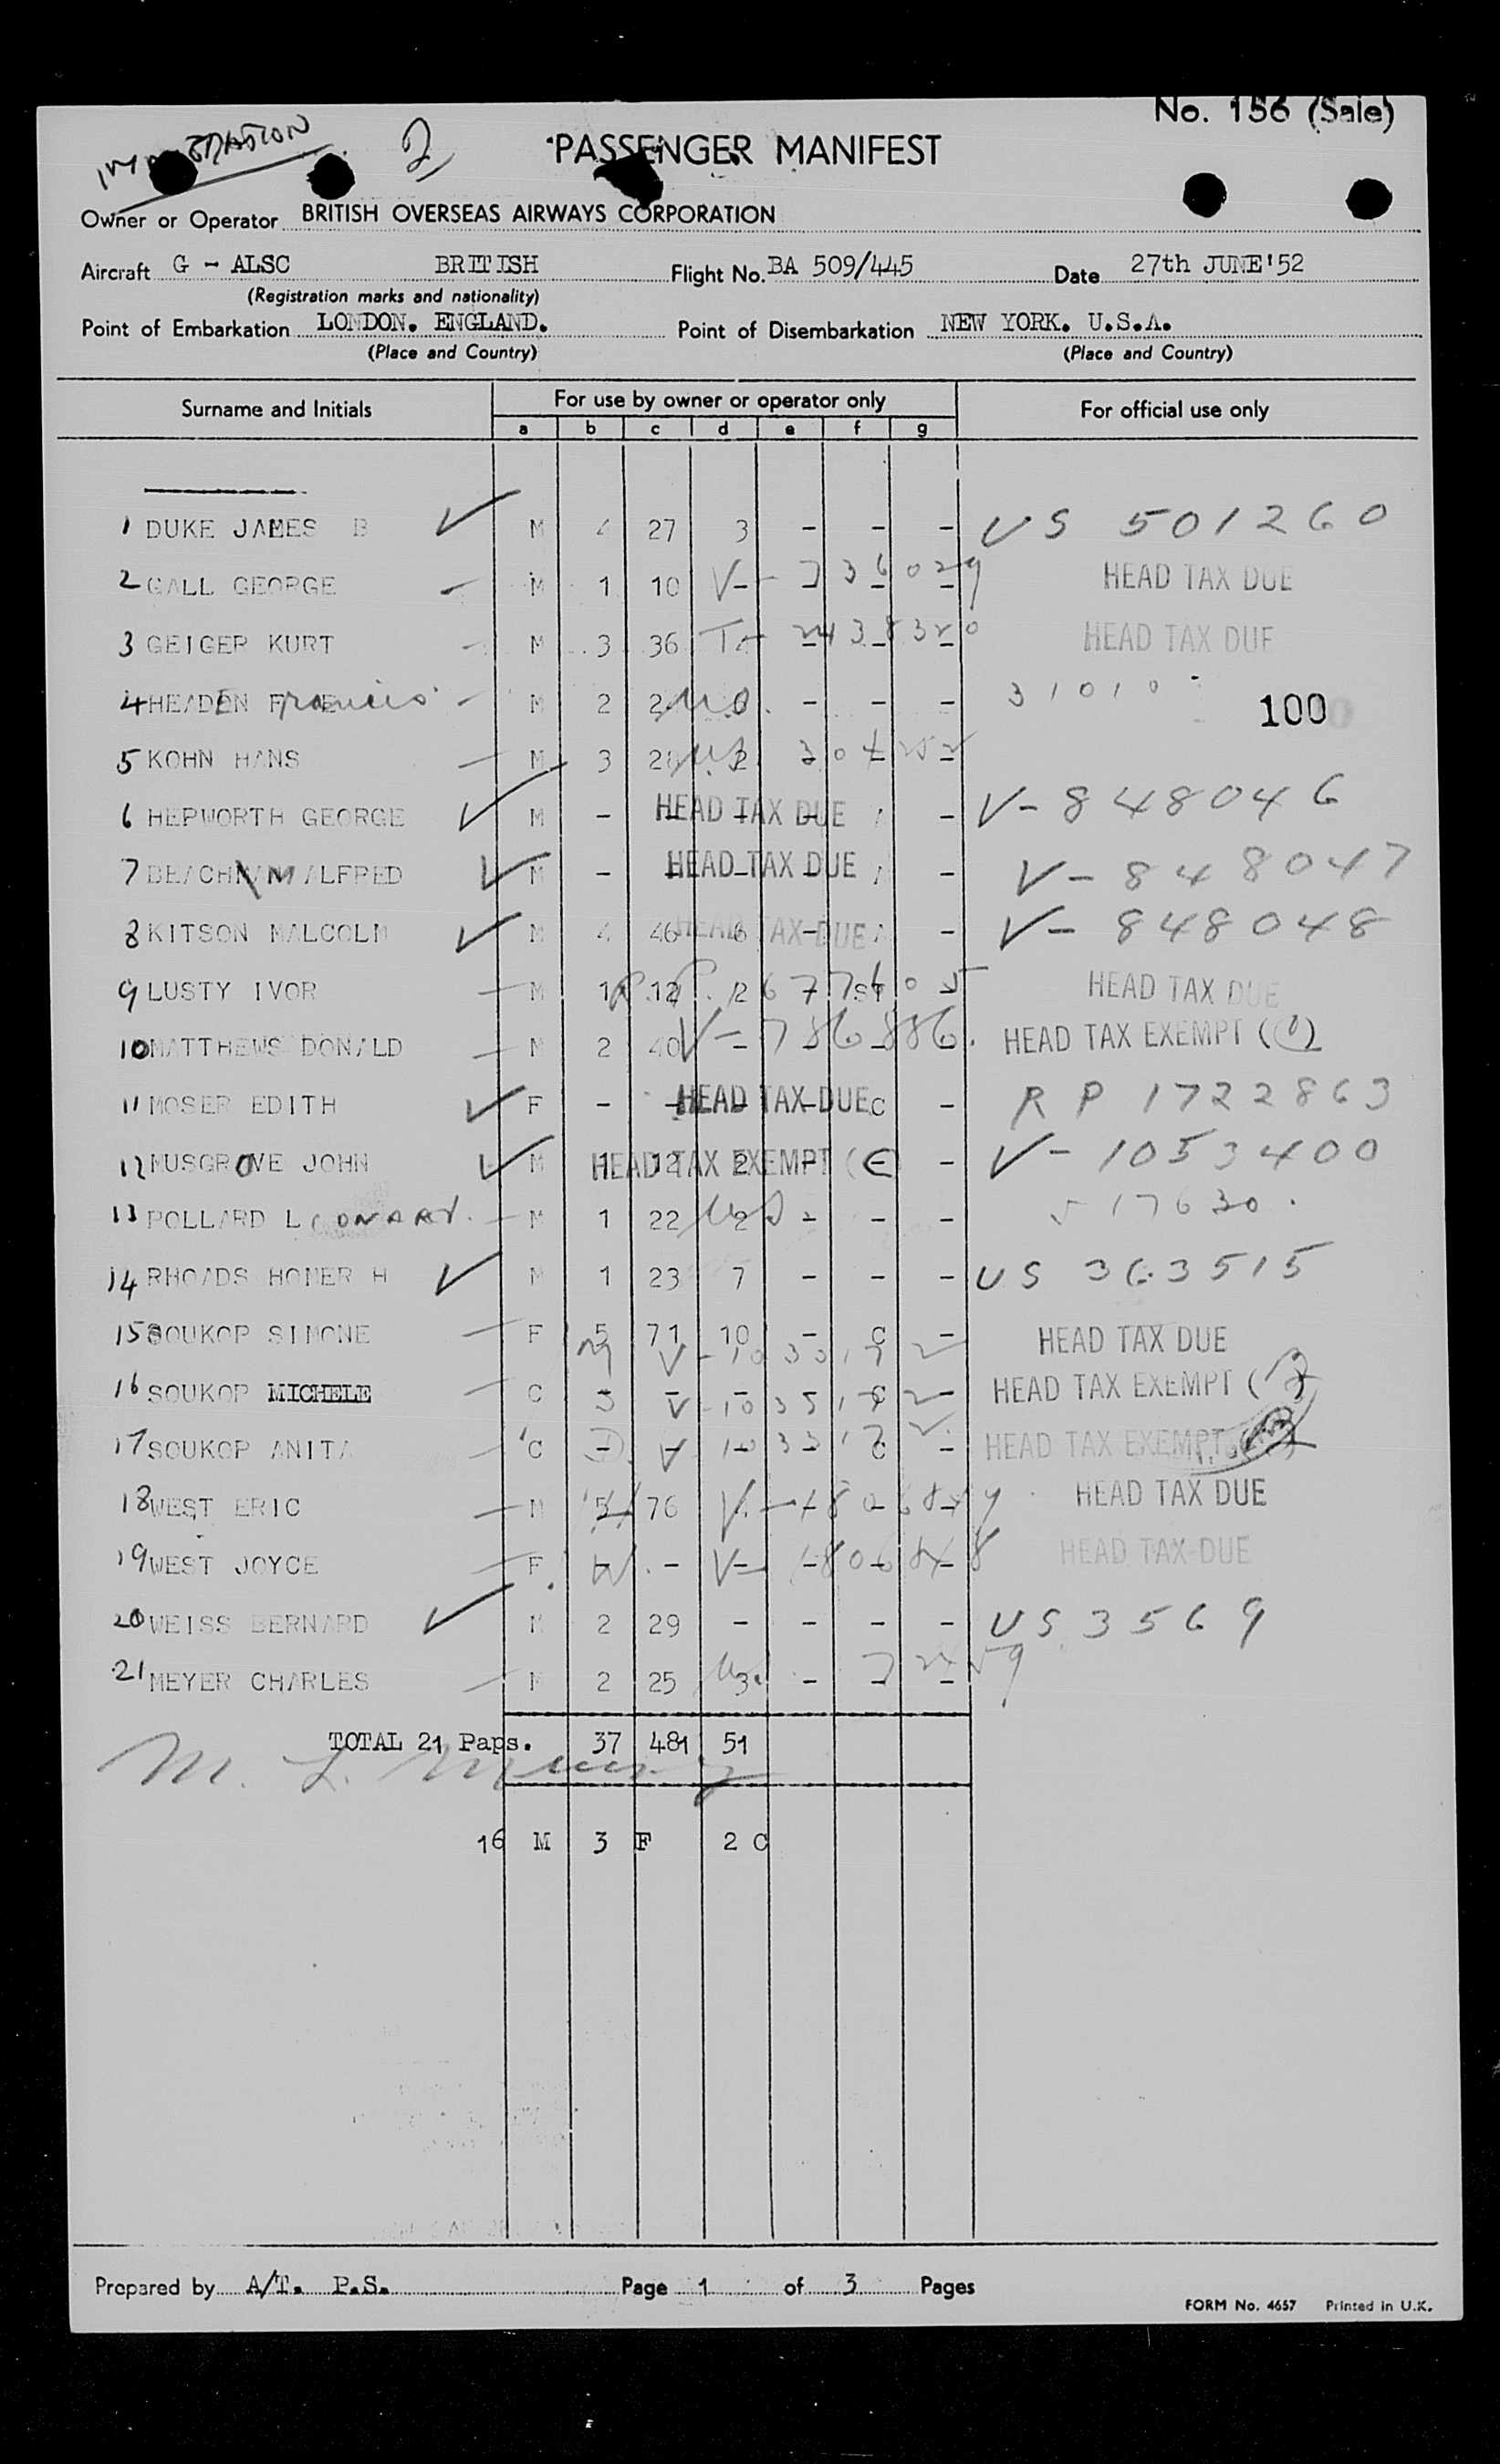 No. 156 (Sale)
2
PASSENGER MANIFEST
Owner or Operator BRITISH OVERSEAS AIRWAYS CORPORATION
Aircraft G - ALSC BRITISH Flight No. BA 509/445 Date 27th JUNE'52
(Registration marks and nationality)
Point of Embarkation LONDON. ENGLAND. Point of Disembarkation NEW YORK. U.S.A.
(Place and Country) (Place and Country)
Surname and Initials For use by owner or operator only For official use only
a b c d e f g
1 DUKE JAMES B M 4 27 3 - - - US 501260
2 GALL GEORGE M 1 10 V - 736029 HEAD TAX DUE
3 GEIGER KURT M 3 36 HEAD TAX DUE
4 HEADEN Francis M 2 - - - 31010 100
5 KOHN HANS M 3 2
6 HEPWORTH GEORGE M - HEAD TAX DUE - V-848046
7 BEACHAM ALFRED M - HEAD TAX DUE - V-848047
8 KITSON MALCOLM M 4 46 6 HEAD TAX DUE - V-848048
9 LUSTY IVOR M 1 12 2 HEAD TAX DUE
10 MATTHEWS DONALD M 2 40 V-786886. HEAD TAX EXEMPT (1)
11 MOSER EDITH F - HEAD TAX DUE C - RP 1722863
12 MUSGROVE JOHN M 1 12 2 HEAD TAX EXEMPT (E) - V-1053400
13 POLLARD LEONARD. M 1 22 2 US - - - 517630.
14 RHOADS HOMER H M 1 23 7 - - - US 363515
15 SOUKOP SIMONE F 5 71 10 - C - HEAD TAX DUE
16 SOUKOP MICHELE C - - - C - HEAD TAX EXEMPT
17 SOUKOP ANITA C - - - - C - HEAD TAX EXEMPT
18 WEST ERIC M 5 76 HEAD TAX DUE
19 WEST JOYCE F W - V- HEAD TAX DUE
20 WEISS BERNARD M 2 29 - - - - US 3569
21 MEYER CHARLES M 2 25 3 - - -
TOTAL 21 Paps. 37 481 51
16 M 3 F 2 C
Prepared by A/T. P.S. Page 1 of 3 Pages
FORM No. 4657 Printed in U.K.